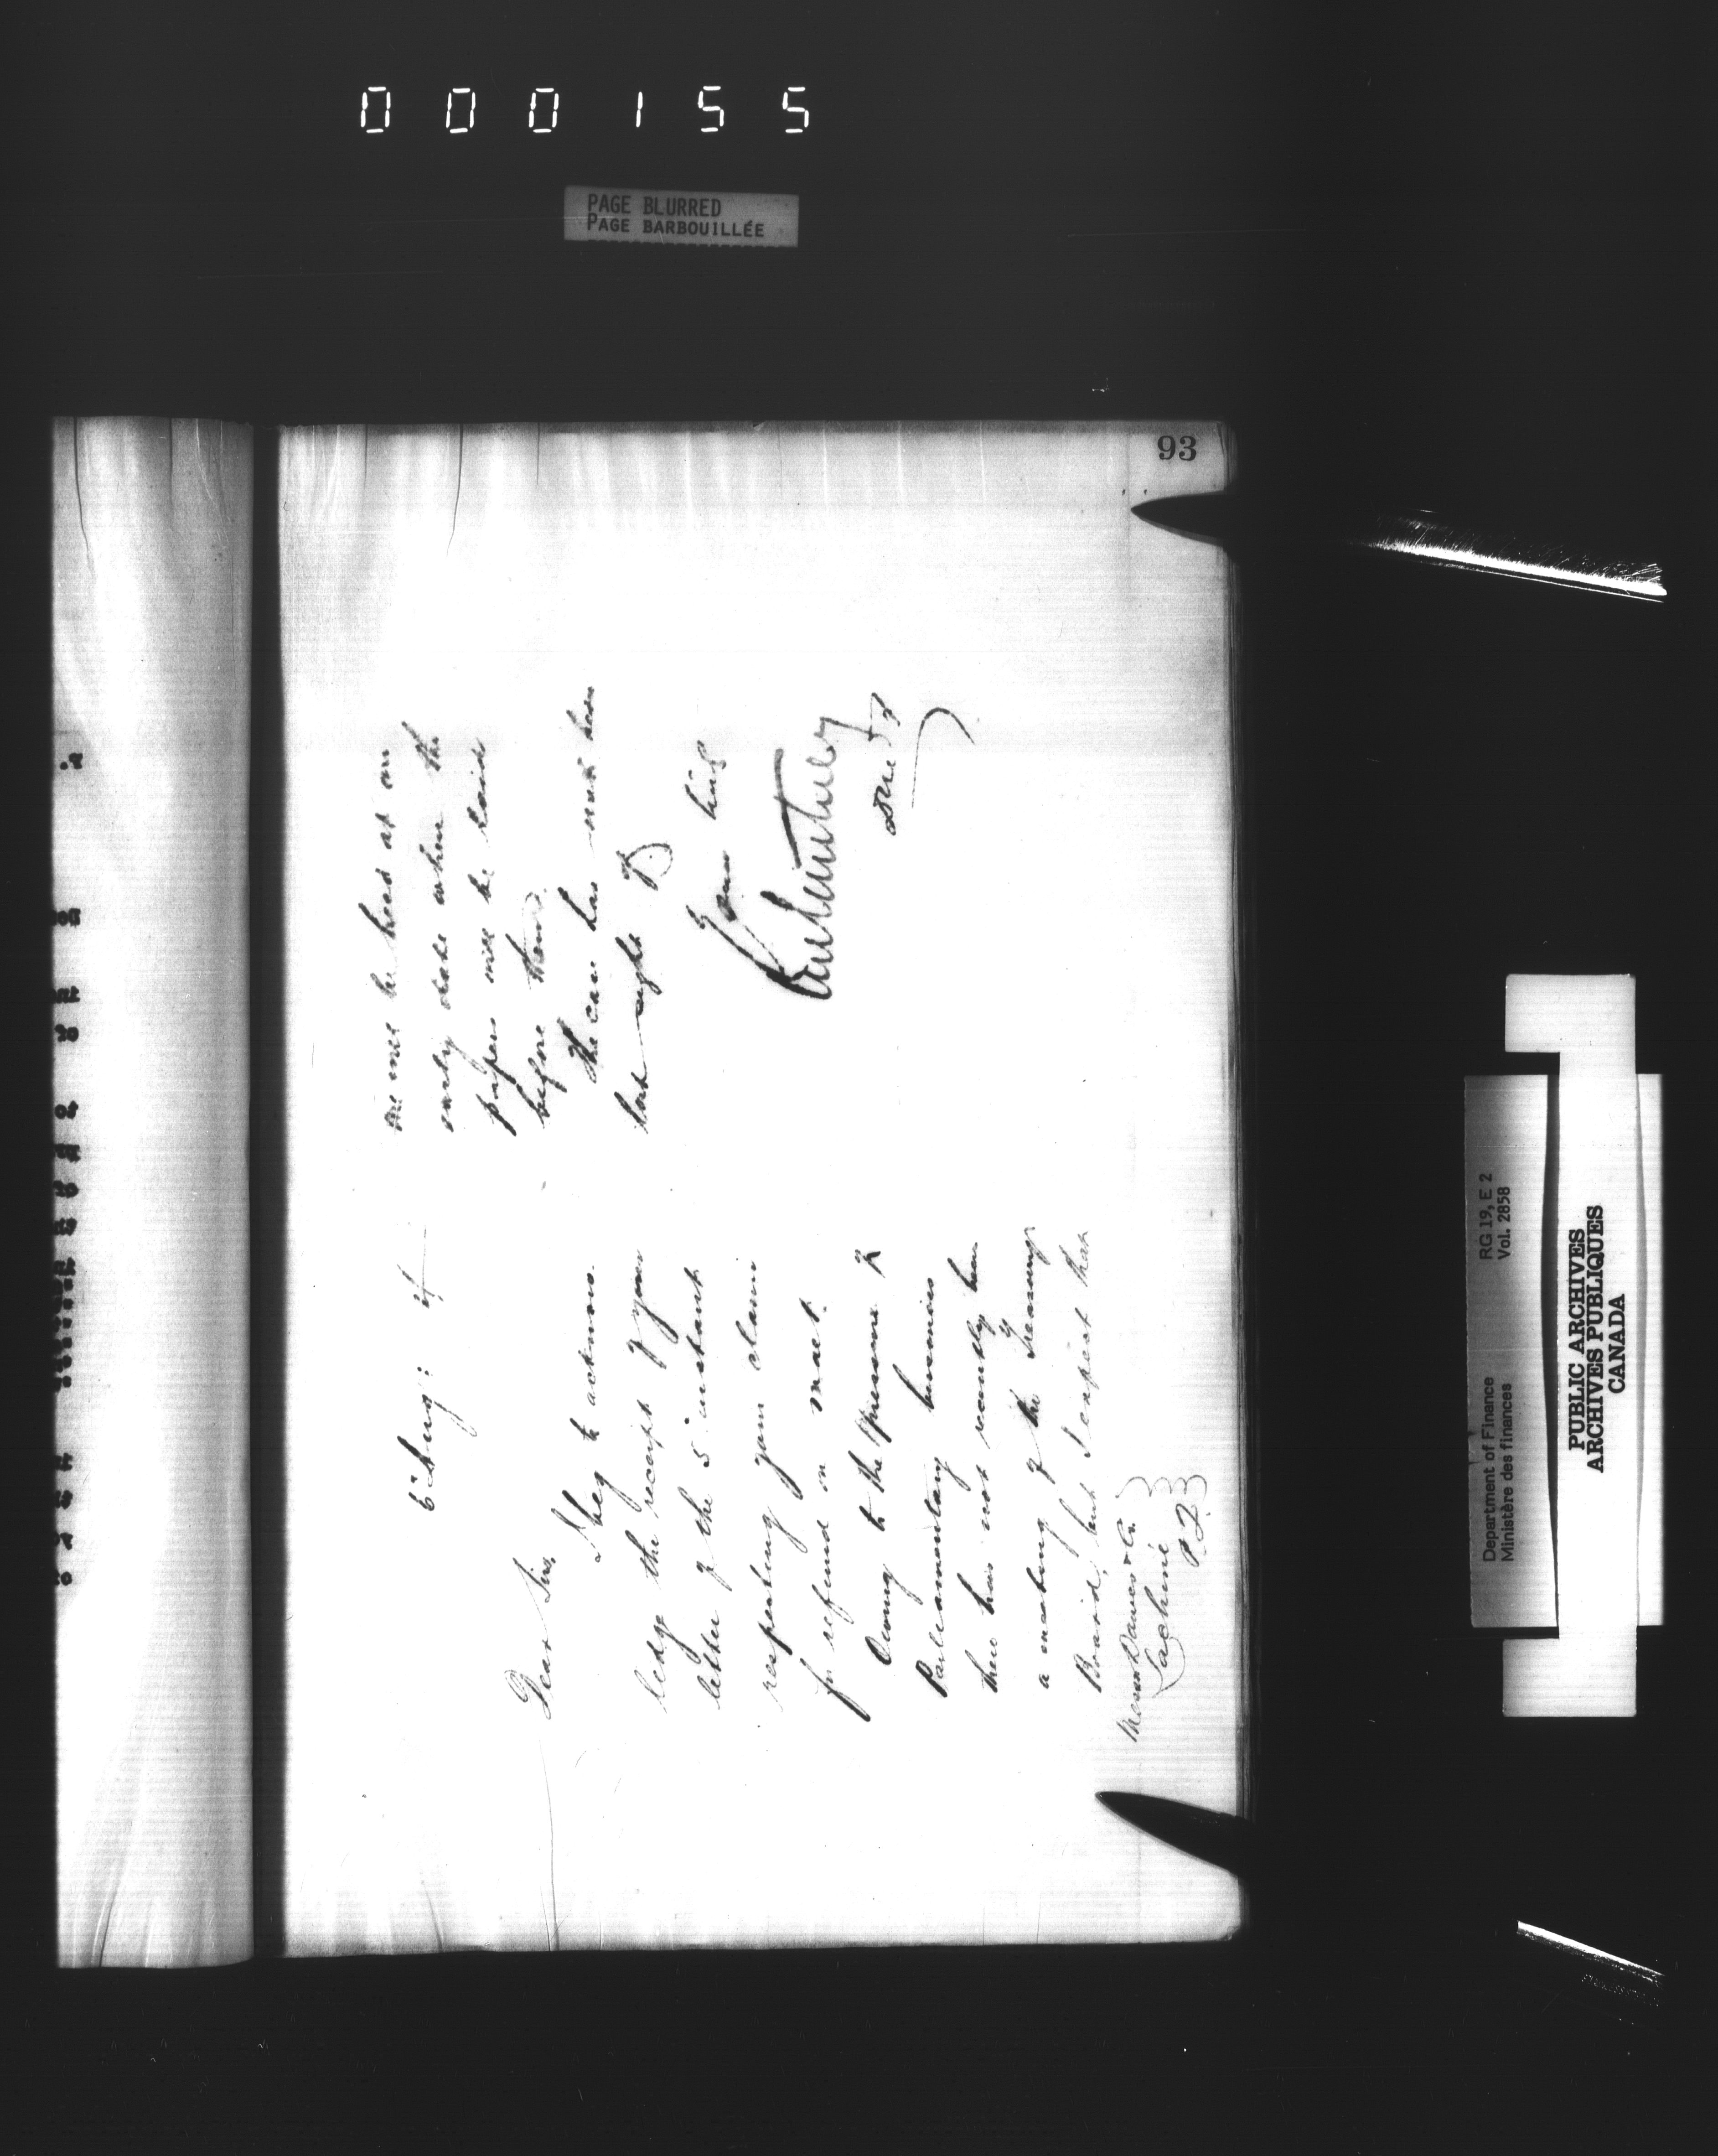 000155
PAGE BLURRED
PAGE BARBOUILLÉE
93
6th Aug:
Dear Sirs,
I beg to acknow-
ledge the receipt of your
letter of the 5 instant
respecting your claim
for refund on malt.
Owing to the pressure of
Parliamentary business
there has not recently been
a meeting of the Treasury
Board, but I expect that
Messrs Dawes & Co.
Lachine
P.Q.
one will be held at an
early date when the
papers will be laid
before them.
The case has not been
lost sight of.
Yours truly
DMF
Department of Finance
Ministère des finances
RG 19, E 2
Vol. 2858
PUBLIC ARCHIVES
ARCHIVES PUBLIQUES
CANADA